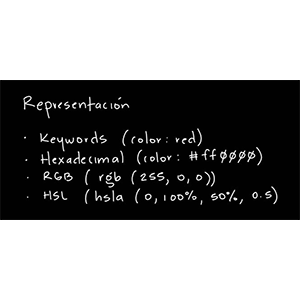 Representación
· Keywords (color: red)
· Hexadecimal (color: #ff0000)
· RGB ( rgb (255, 0, 0))
· HSL (hsla (0,100%, 50%, 0.5)